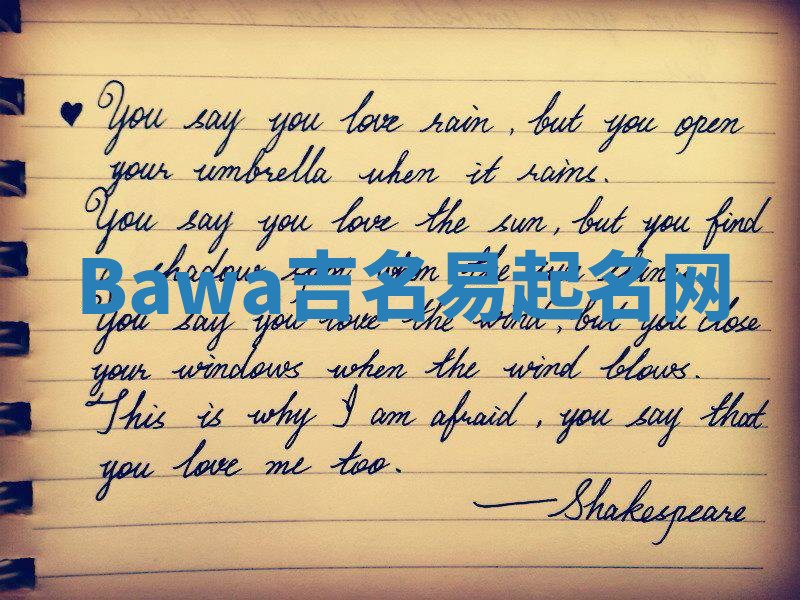 You say you love rain, but you open
your umbrella when it rains.
You say you love the sun, but you find
a shadow spot when the sun shines.
Bawa吉名易起名网
You say you love the wind, but you close
your windows when the wind blows.
This is why I am afraid, you say that
you love me too.
—Shakespeare